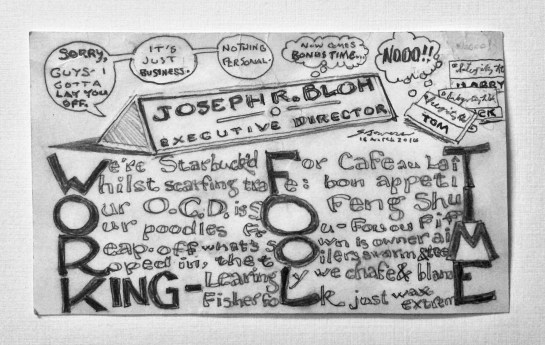 SORRY,
GUYS- I
GOTTA
LAY YOU
OFF.
IT'S
JUST
BUSINESS.
NOTHING
PERSONAL.
NOW COMES
BONUS TIME...
NOOO!!
JOSEPH R. BLOH
EXECUTIVE DIRECTOR
HARRY
TOM
We're Starbuck'd For Cafe au Lait
Whilst scarfing trade: bon appeti
Our O.C.D. is Feng Shu
Our poodles
Reap-off what's sown is owner
Roped in, the toilers swarm &
KING- Learingly we chafe &
Fisher look just wax extreme
WORKING-
FOOL
TIME